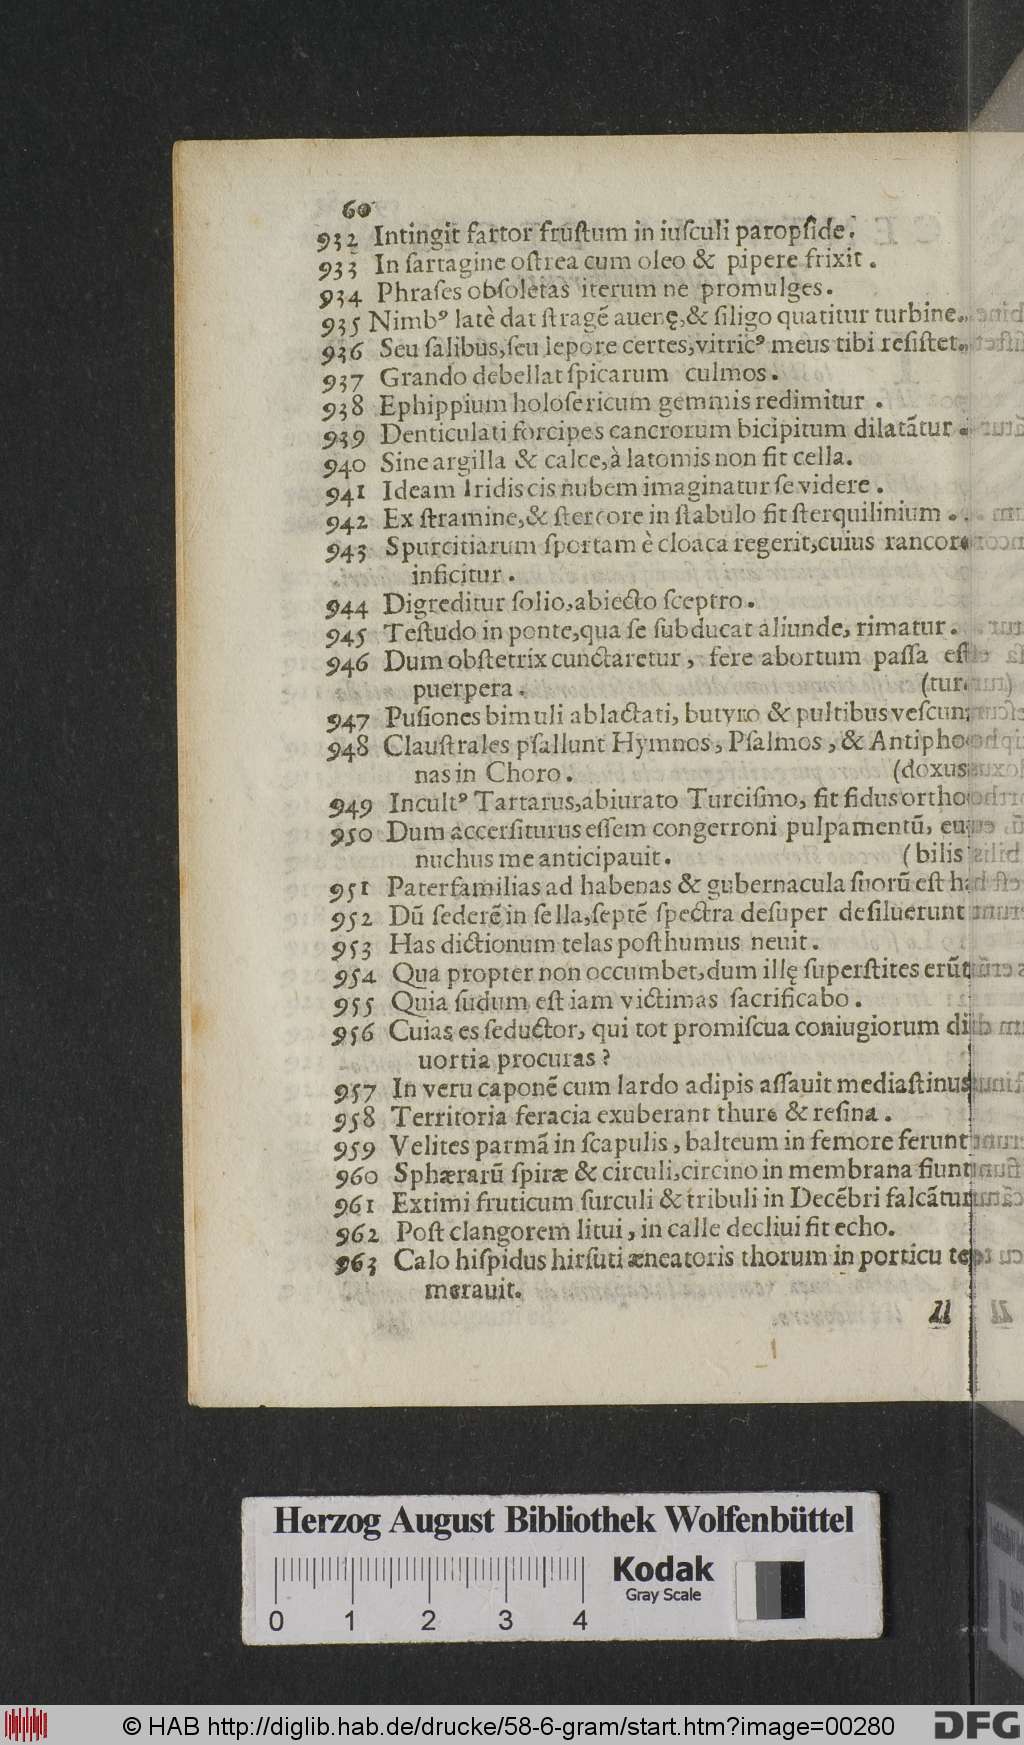 60
932 Intingit fartor fruſtum in iuſculi paropſide.
933 In ſartagine oſtrea cum oleo & pipere frixit.
934 Phraſes obſoletas iterum ne promulges.
935 Nimbꝰ latè dat ſtragē auenę,& ſiligo quatitur turbine.
936 Seu ſalibus,ſeu lepore certes,vitricꝰ meus tibi reſiſtet.
937 Grando debellat ſpicarum culmos.
938 Ephippium holoſericum gemmis redimitur.
939 Denticulati forcipes cancrorum bicipitum dilatātur.
940 Sine argilla & calce,à latomis non fit cella.
941 Ideam Iridis cis nubem imaginatur ſe videre.
942 Ex ſtramine,& ſtercore in ſtabulo fit ſterquilinium.
943 Spurcitiarum ſportam è cloaca regerit,cuius rancore
inficitur.
944 Digreditur ſolio,abiecto ſceptro.
945 Teſtudo in ponte,qua ſe ſubducat aliunde, rimatur.
946 Dum obſtetrix cunctaretur, fere abortum paſſa eſt
puerpera. (tur.
947 Puſiones bimuli ablactati, butyro & pultibus veſcun-
948 Clauſtrales pſallunt Hymnos, Pſalmos, & Antipho-
nas in Choro. (doxus
949 Incultꝰ Tartarus,abiurato Turciſmo, fit fidus ortho-
950 Dum accerſiturus eſſem congerroni pulpamentū, eu-
nuchus me anticipauit. (bilis
951 Paterfamilias ad habenas & gubernacula ſuorū eſt ha-
952 Dū ſederē in ſella,ſeptē ſpectra deſuper deſiluerunt
953 Has dictionum telas poſthumus neuit.
954 Qua propter non occumbet,dum illę ſuperſtites erūt
955 Quia ſudum eſt iam victimas ſacrificabo.
956 Cuias es ſeductor, qui tot promiſcua coniugiorum di-
uortia procuras?
957 In veru caponē cum lardo adipis aſſauit mediaſtinus
958 Territoria feracia exuberant thure & reſina.
959 Velites parmā in ſcapulis, balteum in femore ferunt
960 Sphærarū ſpiræ & circuli,circino in membrana fiunt
961 Extimi fruticum ſurculi & tribuli in Decēbri falcātur
962 Poſt clangorem litui, in calle decliui fit echo.
963 Calo hiſpidus hirſuti æneatoris thorum in porticu te-
merauit.
Herzog August Bibliothek Wolfenbüttel
Kodak
Gray Scale
0 1 2 3 4
© HAB http://diglib.hab.de/drucke/58-6-gram/start.htm?image=00280
DFG